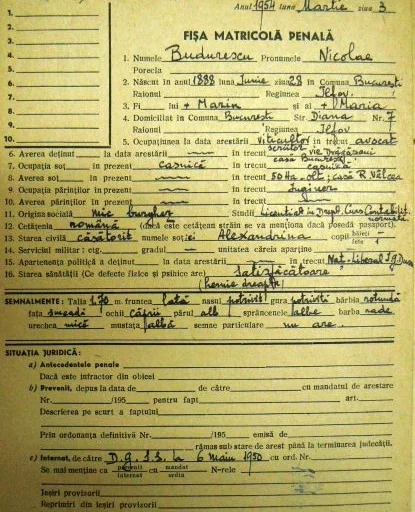 Anul 1954 luna Martie ziua 3
FIȘA MATRICOLĂ PENALĂ
1.
2.
3.
4.
5.
6.
7.
8.
9.
10.
1. Numele Budurescu Pronumele Nicolae
Porecla
2. Născut în anul 1888 luna Iunie ziua 28 în Comuna București
Raionul Regiunea Ilfov.
3. Fi lui + Marin și al + Maria
4. Domiciliat în Comuna București Str. Diana Nr. 7
Raionul Regiunea Ilfov
5. Ocupațiunea la data arestării viticultor în trecut avocat
6. Averea deținut la data arestării în trecut vie Drăgășani
casă București
7. Ocupația soț în prezent casnică în trecut casnică
8. Averea soț în prezent în trecut 50 Ha. Olt; casă R. Vâlcea
9. Ocupația părinților în prezent în trecut inginer
10. Averea părinților în prezent în trecut
11. Origina socială mic burghez Studii Licențiat în Drept, Curs Contabilit.
normală
12. Cetățenia română (dacă este cetățean străin se va menționa dacă posedă pașaport).
13. Starea civilă căsătorit numele soției Alexandrina copii băieți
fete
14. Serviciul militar: ctg. gradul unitatea căreia aparține
15. Apartenența politică a deținut la data arestării în trecut Nat. Liberal
16. Starea sănătății (Ce defecte fizice și psihice are) Satisfăcătoare
(hernie dreaptă)
SEMNALMENTE: Talia 1.70 m. fruntea lată nasul potrivit gura potrivită bărbia rotundă
fața smeadă ochii căprii părul alb sprâncenele albe barba rade
urechea mică mustața albă semne particulare nu are.
SITUAȚIA JURIDICĂ:
a) Antecedentele penale
Dacă este infractor din obicei
b) Prevenit, depus la data de de către cu mandatul de arestare
Nr. /195 pentru fapt art.
Descrierea pe scurt a faptului
Prin ordonanța definitivă Nr. /195 emisă de
rămas sub stare de arest până la terminarea judecății.
c) Internat, de către D.G.S.S. la 6 Maiu 1950 cu ord. Nr.
Se mai menține ca prevenit cu mandat N-rele
internat ordin
Ieșiri provizorii
Reprimiri din ieșiri provizorii